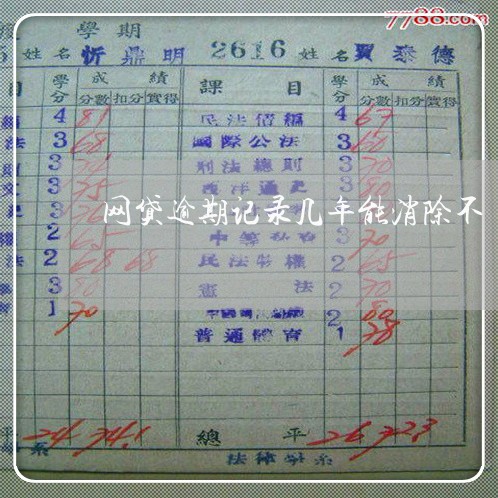 7788.com
學期
姓名 忻鼎明 2616 姓名 賈泰德
目 學分 成績 課目 學分 成績
分數 扣分 實得 分數 扣分 實得
4 81 民法債編 4 67
法 3 68 國際公法 3 60
3 刑法總則 3 70
3 75 西洋通史 3 80
网贷逾期记录几年能消除不
2 65 3 70
法 2 68 68 民法物權 2 65
3 80 憲法 2 70
1 70 2 80
普通體育 1 78
平 24 74.1 總平 26 72.3
系 法律學系